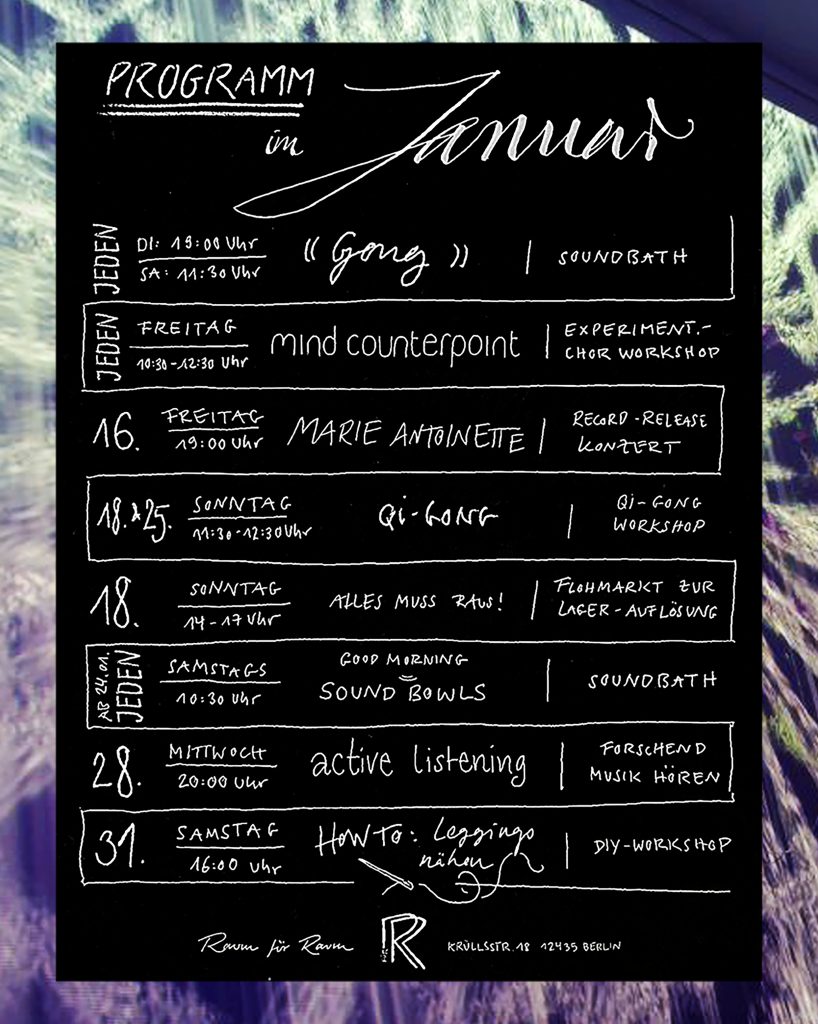 PROGRAMM
im Januar
JEDEN
DI: 19:00 Uhr
SA: 11:30 Uhr
« Gong »
SOUNDBATH
JEDEN
FREITAG
10:30-12:30 Uhr
mind counterpoint
EXPERIMENT.-
CHOR WORKSHOP
16.
FREITAG
19:00 Uhr
MARIE ANTOINETTE
RECORD-RELEASE
KONZERT
18.&25.
SONNTAG
11:30-12:30 Uhr
Qi-GONG
Qi-GONG
WORKSHOP
18.
SONNTAG
14-17 Uhr
ALLES MUSS RAUS!
FLOHMARKT ZUR
LAGER-AUFLÖSUNG
AB 24.01.
JEDEN
SAMSTAGS
10:30 Uhr
GOOD MORNING
SOUND BOWLS
SOUNDBATH
28.
MITTWOCH
20:00 Uhr
active listening
FORSCHEND
MUSIK HÖREN
31.
SAMSTAG
16:00 Uhr
HOW TO: Leggings
nähen
DIY-WORKSHOP
Raum für Raum
KRÜLLSSTR. 18 12435 BERLIN